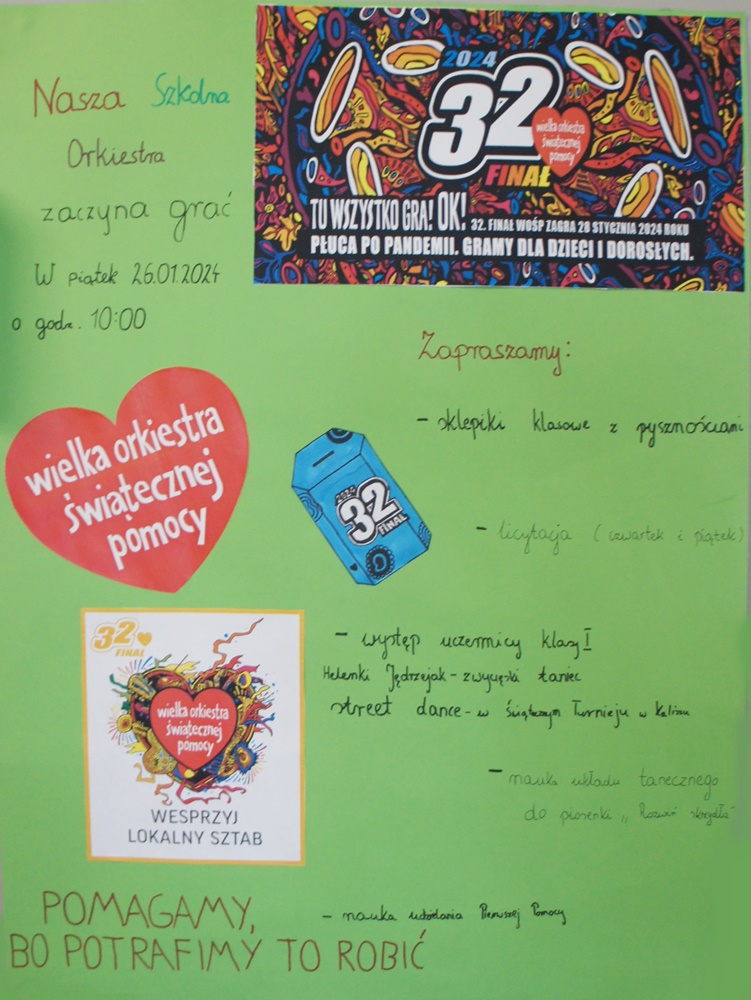 Nasza Szkolna
Orkiestra
zaczyna grać
W piątek 26.01.2024
o godz. 10:00
2024
32
FINAŁ
wielka orkiestra
świątecznej
pomocy
TU WSZYSTKO GRA! OK! 32. FINAŁ WOŚP ZAGRA 28 STYCZNIA 2024 ROKU
PŁUCA PO PANDEMII. GRAMY DLA DZIECI I DOROSŁYCH.
Zapraszamy:
- sklepiki klasowe z pysznościami
- licytacja (czwartek i piątek)
- występ uczennicy klasy I
Helenki Jędrzejak - zwycięski taniec
street dance - w świątecznym Turnieju w Kaliszu
- nauka układu tanecznego
do piosenki „Rozwiń skrzydła"
- nauka udzielania Pierwszej Pomocy
wielka orkiestra
świątecznej
pomocy
2024
32
FINAŁ
32
FINAŁ
wielka orkiestra
świątecznej
pomocy
WESPRZYJ
LOKALNY SZTAB
POMAGAMY,
BO POTRAFIMY TO ROBIĆ